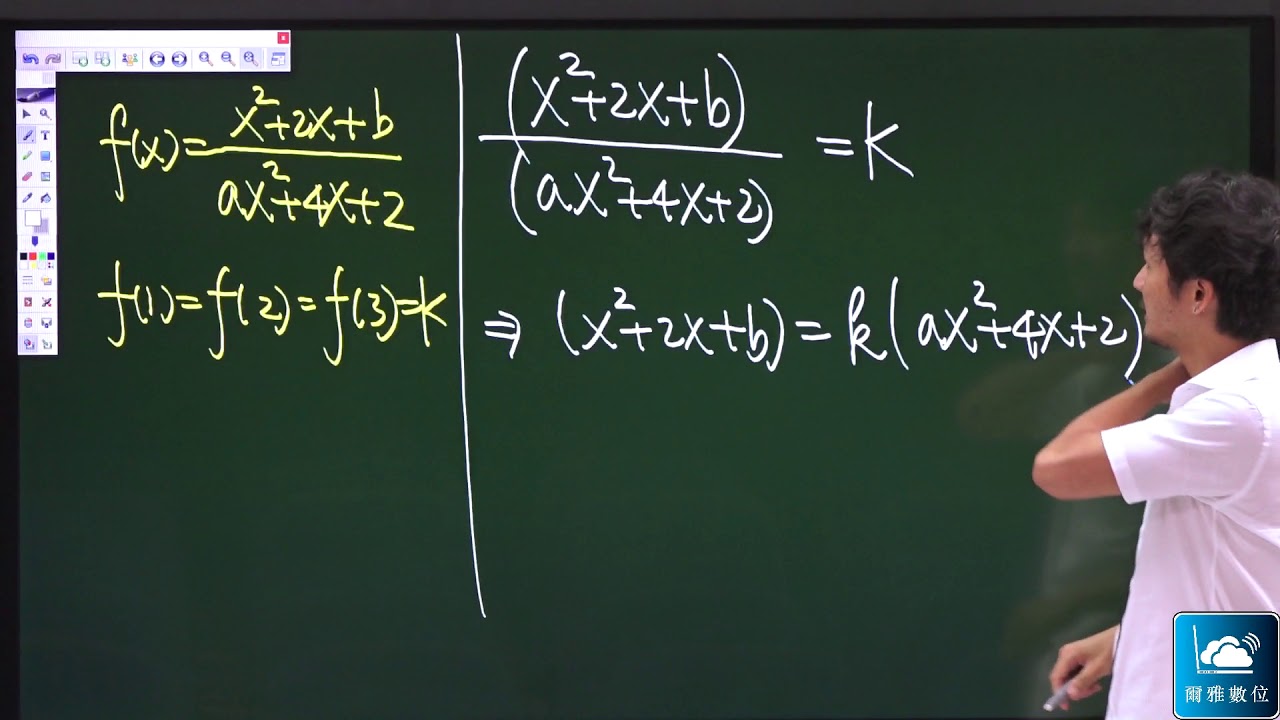 f(x)=\frac{x²+2x+b}{ax²+4x+2}
f(1)=f(2)=f(3)=k
\frac{(x²+2x+b)}{(ax²+4x+2)}=k
⇒(x²+2x+b)=k(ax²+4x+2)
爾雅數位